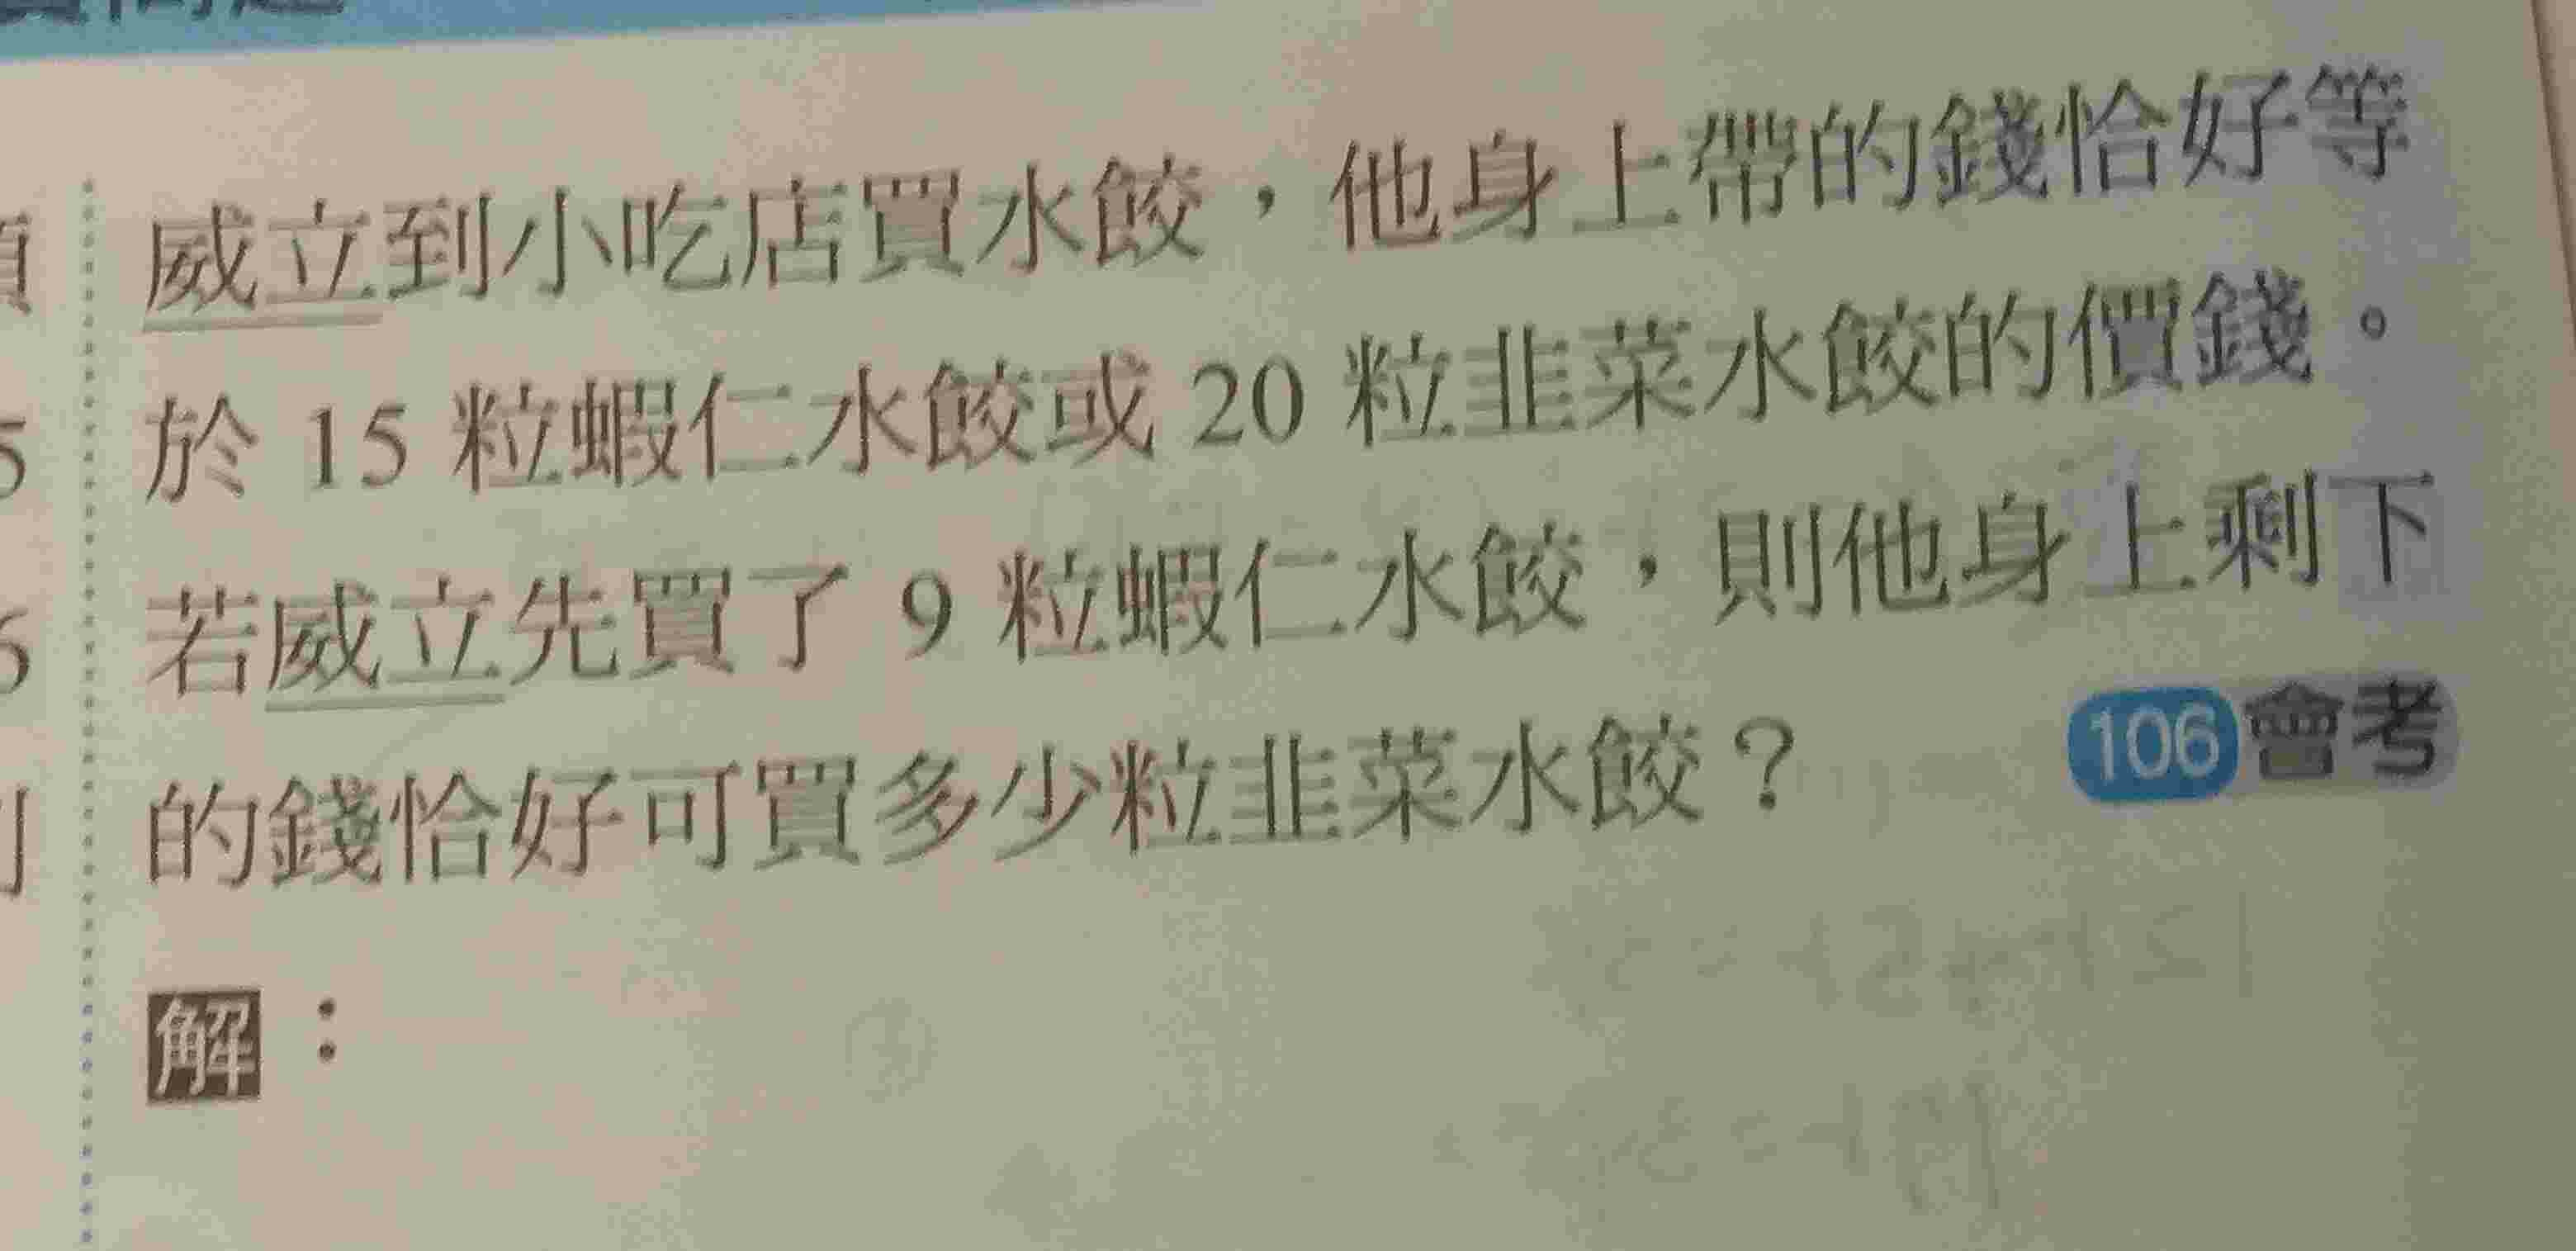 威立到小吃店買水餃，他身上帶的錢恰好等
於 15 粒蝦仁水餃或 20 粒韭菜水餃的價錢。
若威立先買了 9 粒蝦仁水餃，則他身上剩下
的錢恰好可買多少粒韭菜水餃？
106 會考
解：